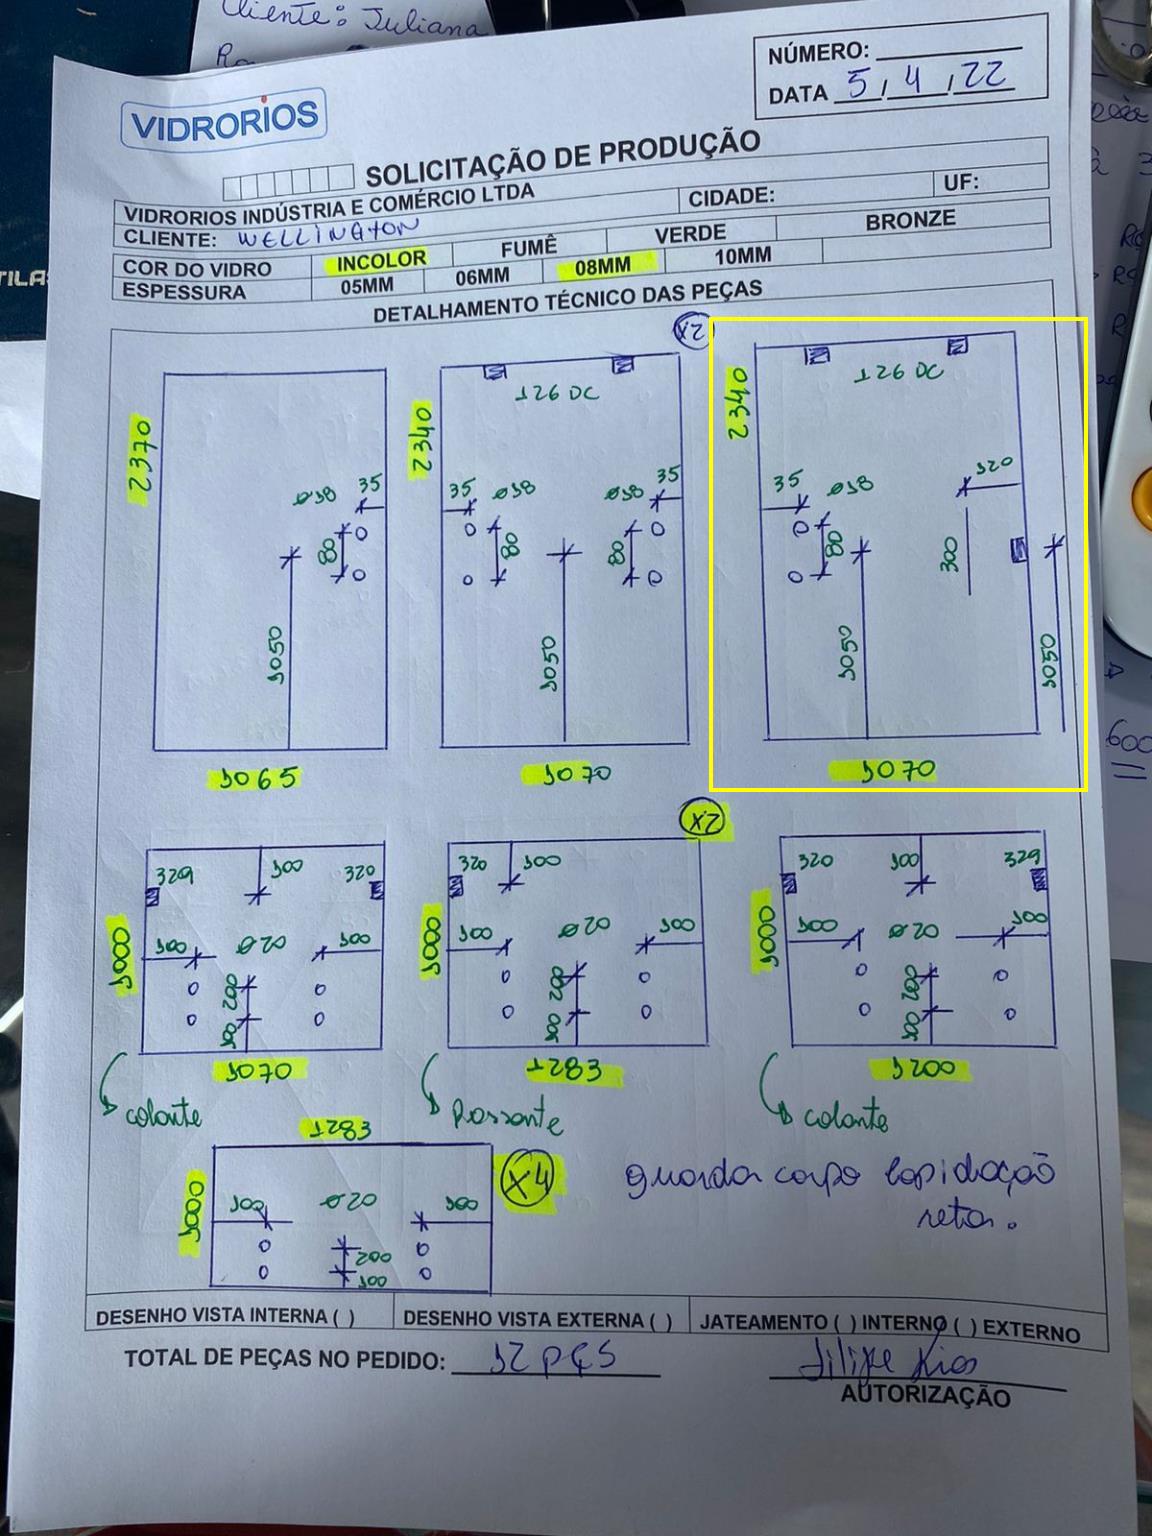 Cliente: Juliana
NÚMERO:
DATA 5/4/22
VIDRORIOS
SOLICITAÇÃO DE PRODUÇÃO
VIDRORIOS INDÚSTRIA E COMÉRCIO LTDA CIDADE: UF:
CLIENTE: WELLINGTON
COR DO VIDRO INCOLOR FUMÊ VERDE BRONZE
ESPESSURA 05MM 06MM 08MM 10MM
DETALHAMENTO TÉCNICO DAS PEÇAS
x2
2370 2340 126 DC 2340 126 DC
35 ø18 35 ø18 ø18 35 35 ø18 120
80 80 80 80 300
1050 1050 1050 1050
1065 1070 1070
x2
329 100 320 320 100 320 100 329
1000 100 ø20 100 1000 100 ø20 100 1000 100 ø20 100
200 200 200
100 100 100
1070 1283 1200
colante Passante colante
1283
1000 100 ø20 100 x4
200
100
guarda corpo lapidação
reta.
DESENHO VISTA INTERNA ( ) DESENHO VISTA EXTERNA ( ) JATEAMENTO ( ) INTERNO ( ) EXTERNO
TOTAL DE PEÇAS NO PEDIDO: 12 PÇS Filipe Rios
AUTORIZAÇÃO
600